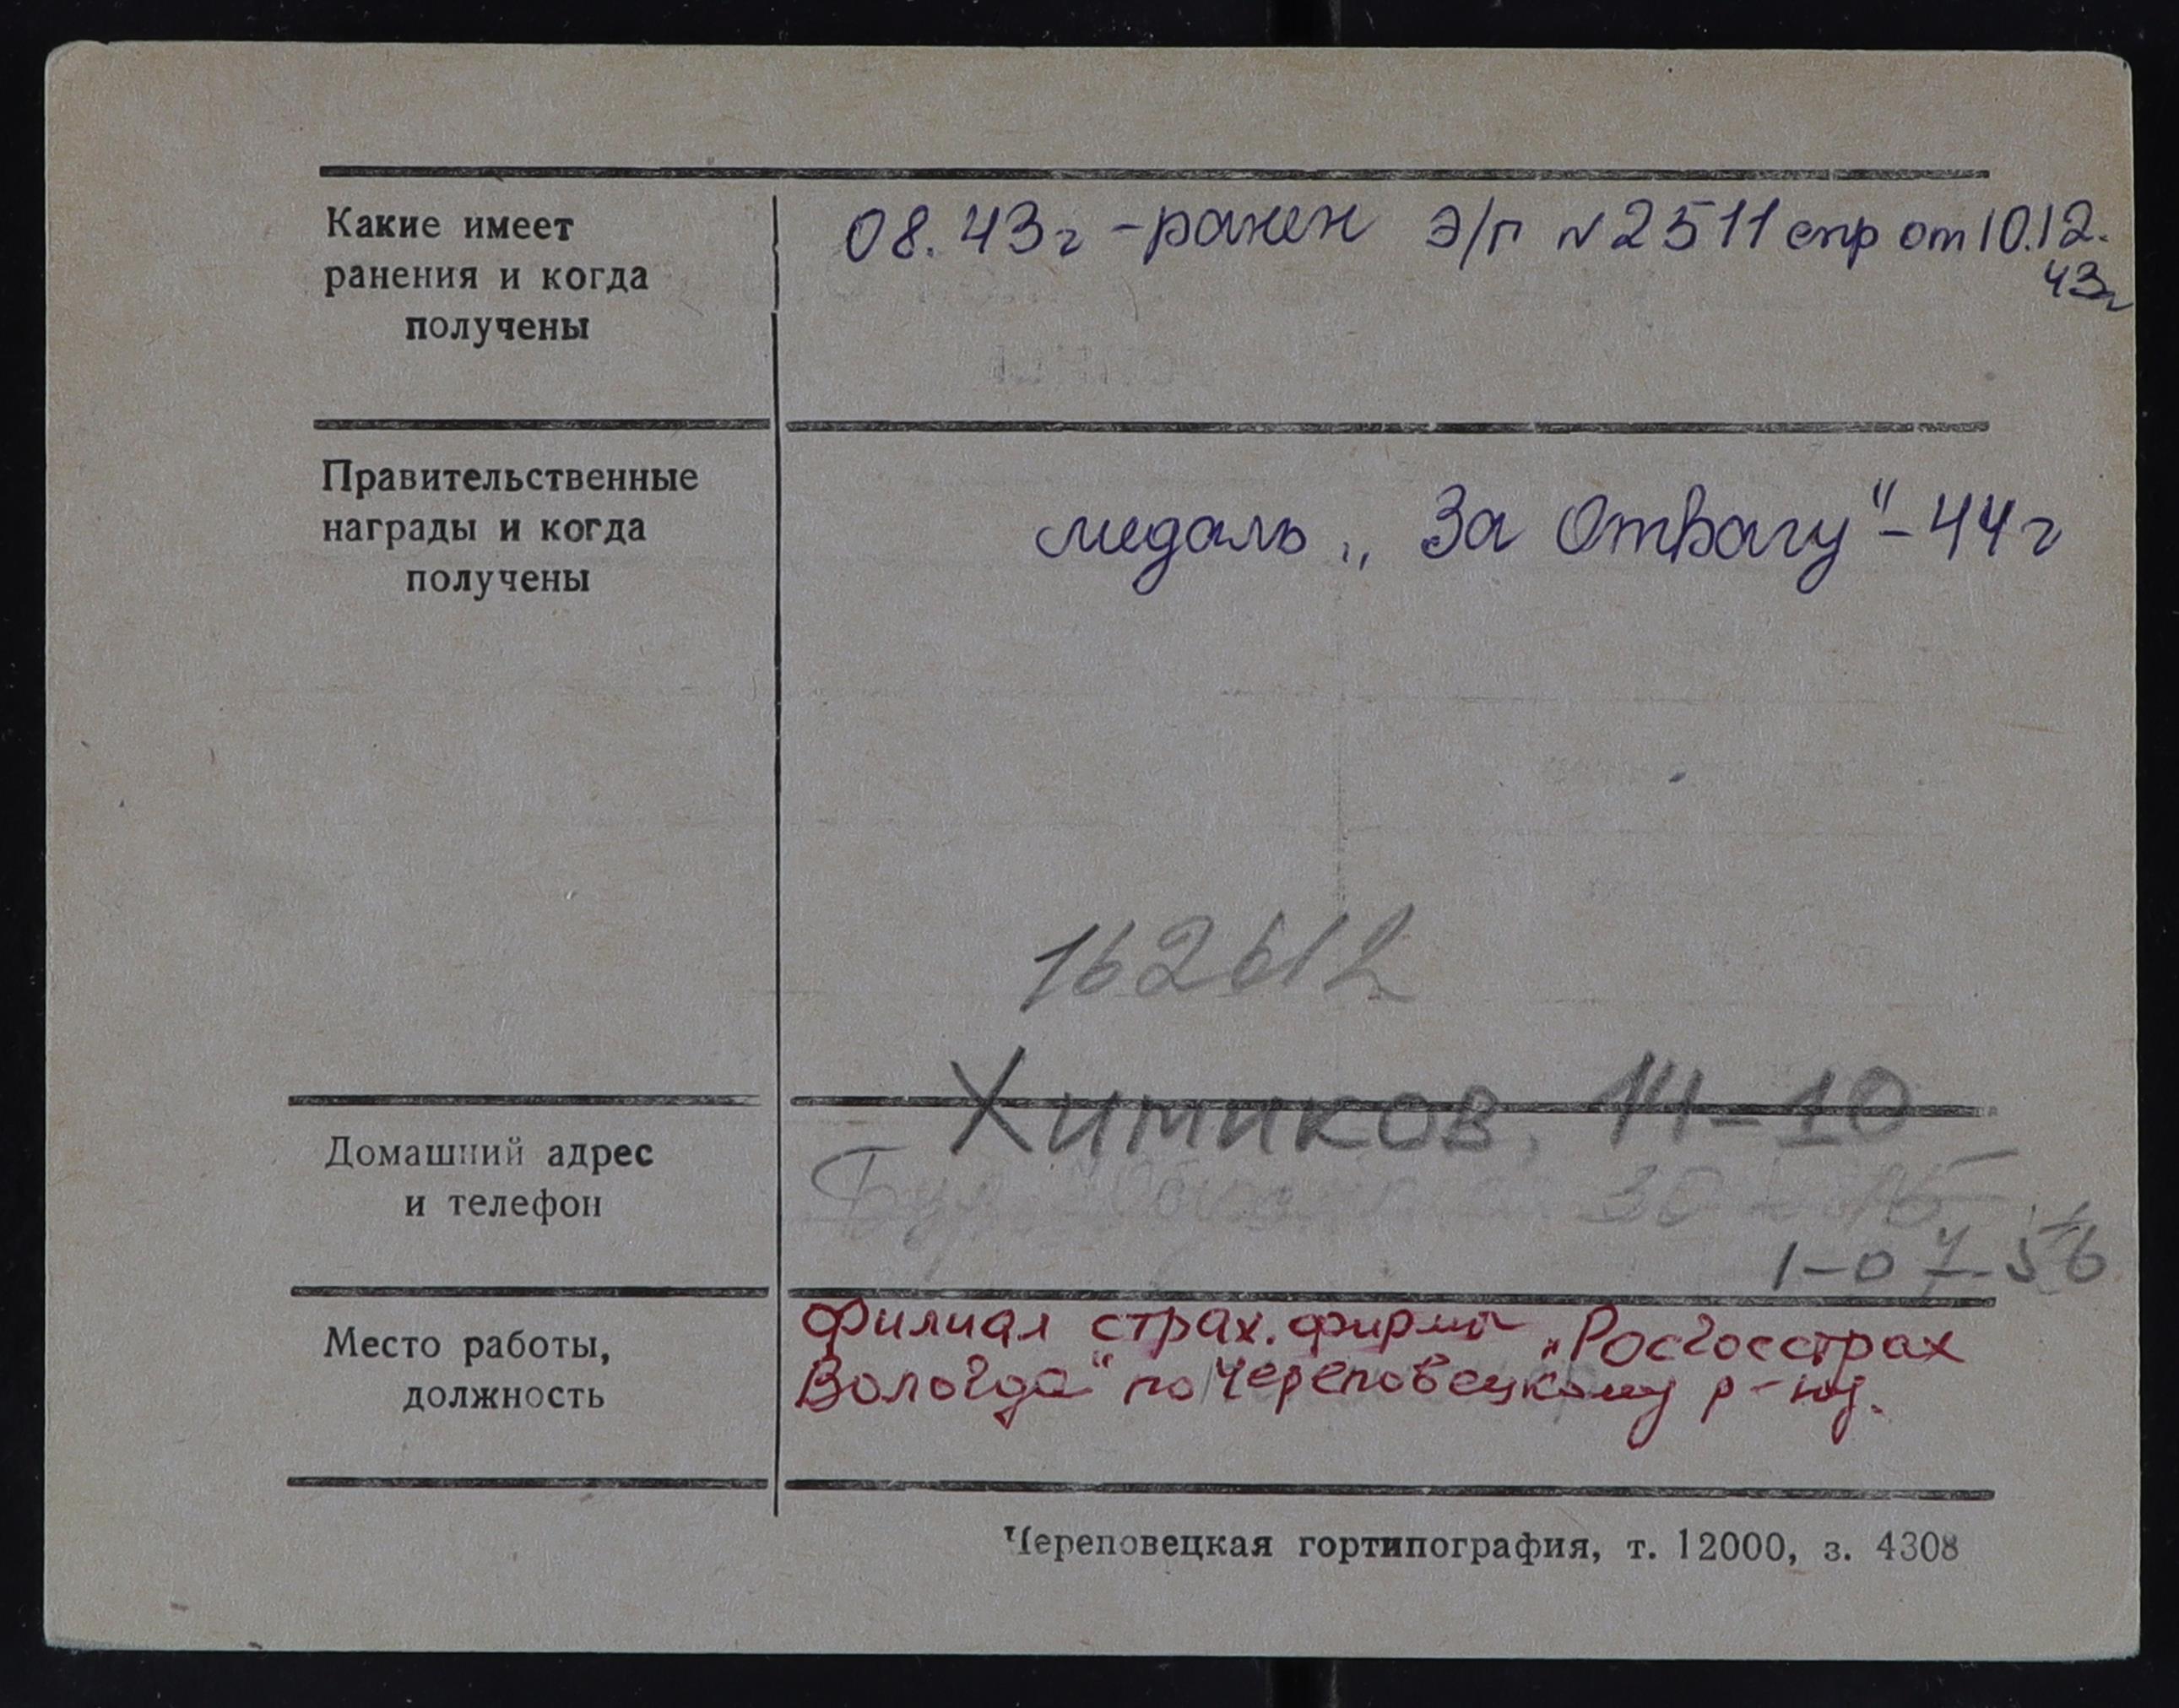 Какие имеет
ранения и когда
получены
08.43г - ранен Э/г N 2511 спр от 10.12.
43г
Правительственные
награды и когда
получены
медаль „За Отвагу" - 44г
162612
Химиков, 14-10
Домашний адрес
и телефон
Бул. 30 - 15
1-07-56
Место работы,
должность
Филиал страх. фирмы „Росгосстрах
Вологда" по Череповецкому р-ну.
Череповецкая гортипография, т. 12000, з. 4308